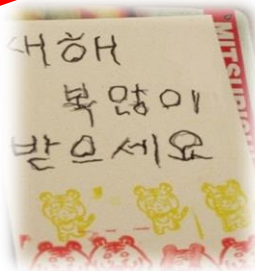 새해
복 많이
받으세요
MITSUBISHI